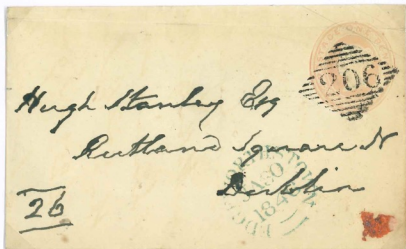 206
Hugh Stanley Esq
Rutland Square N
Dublin
26